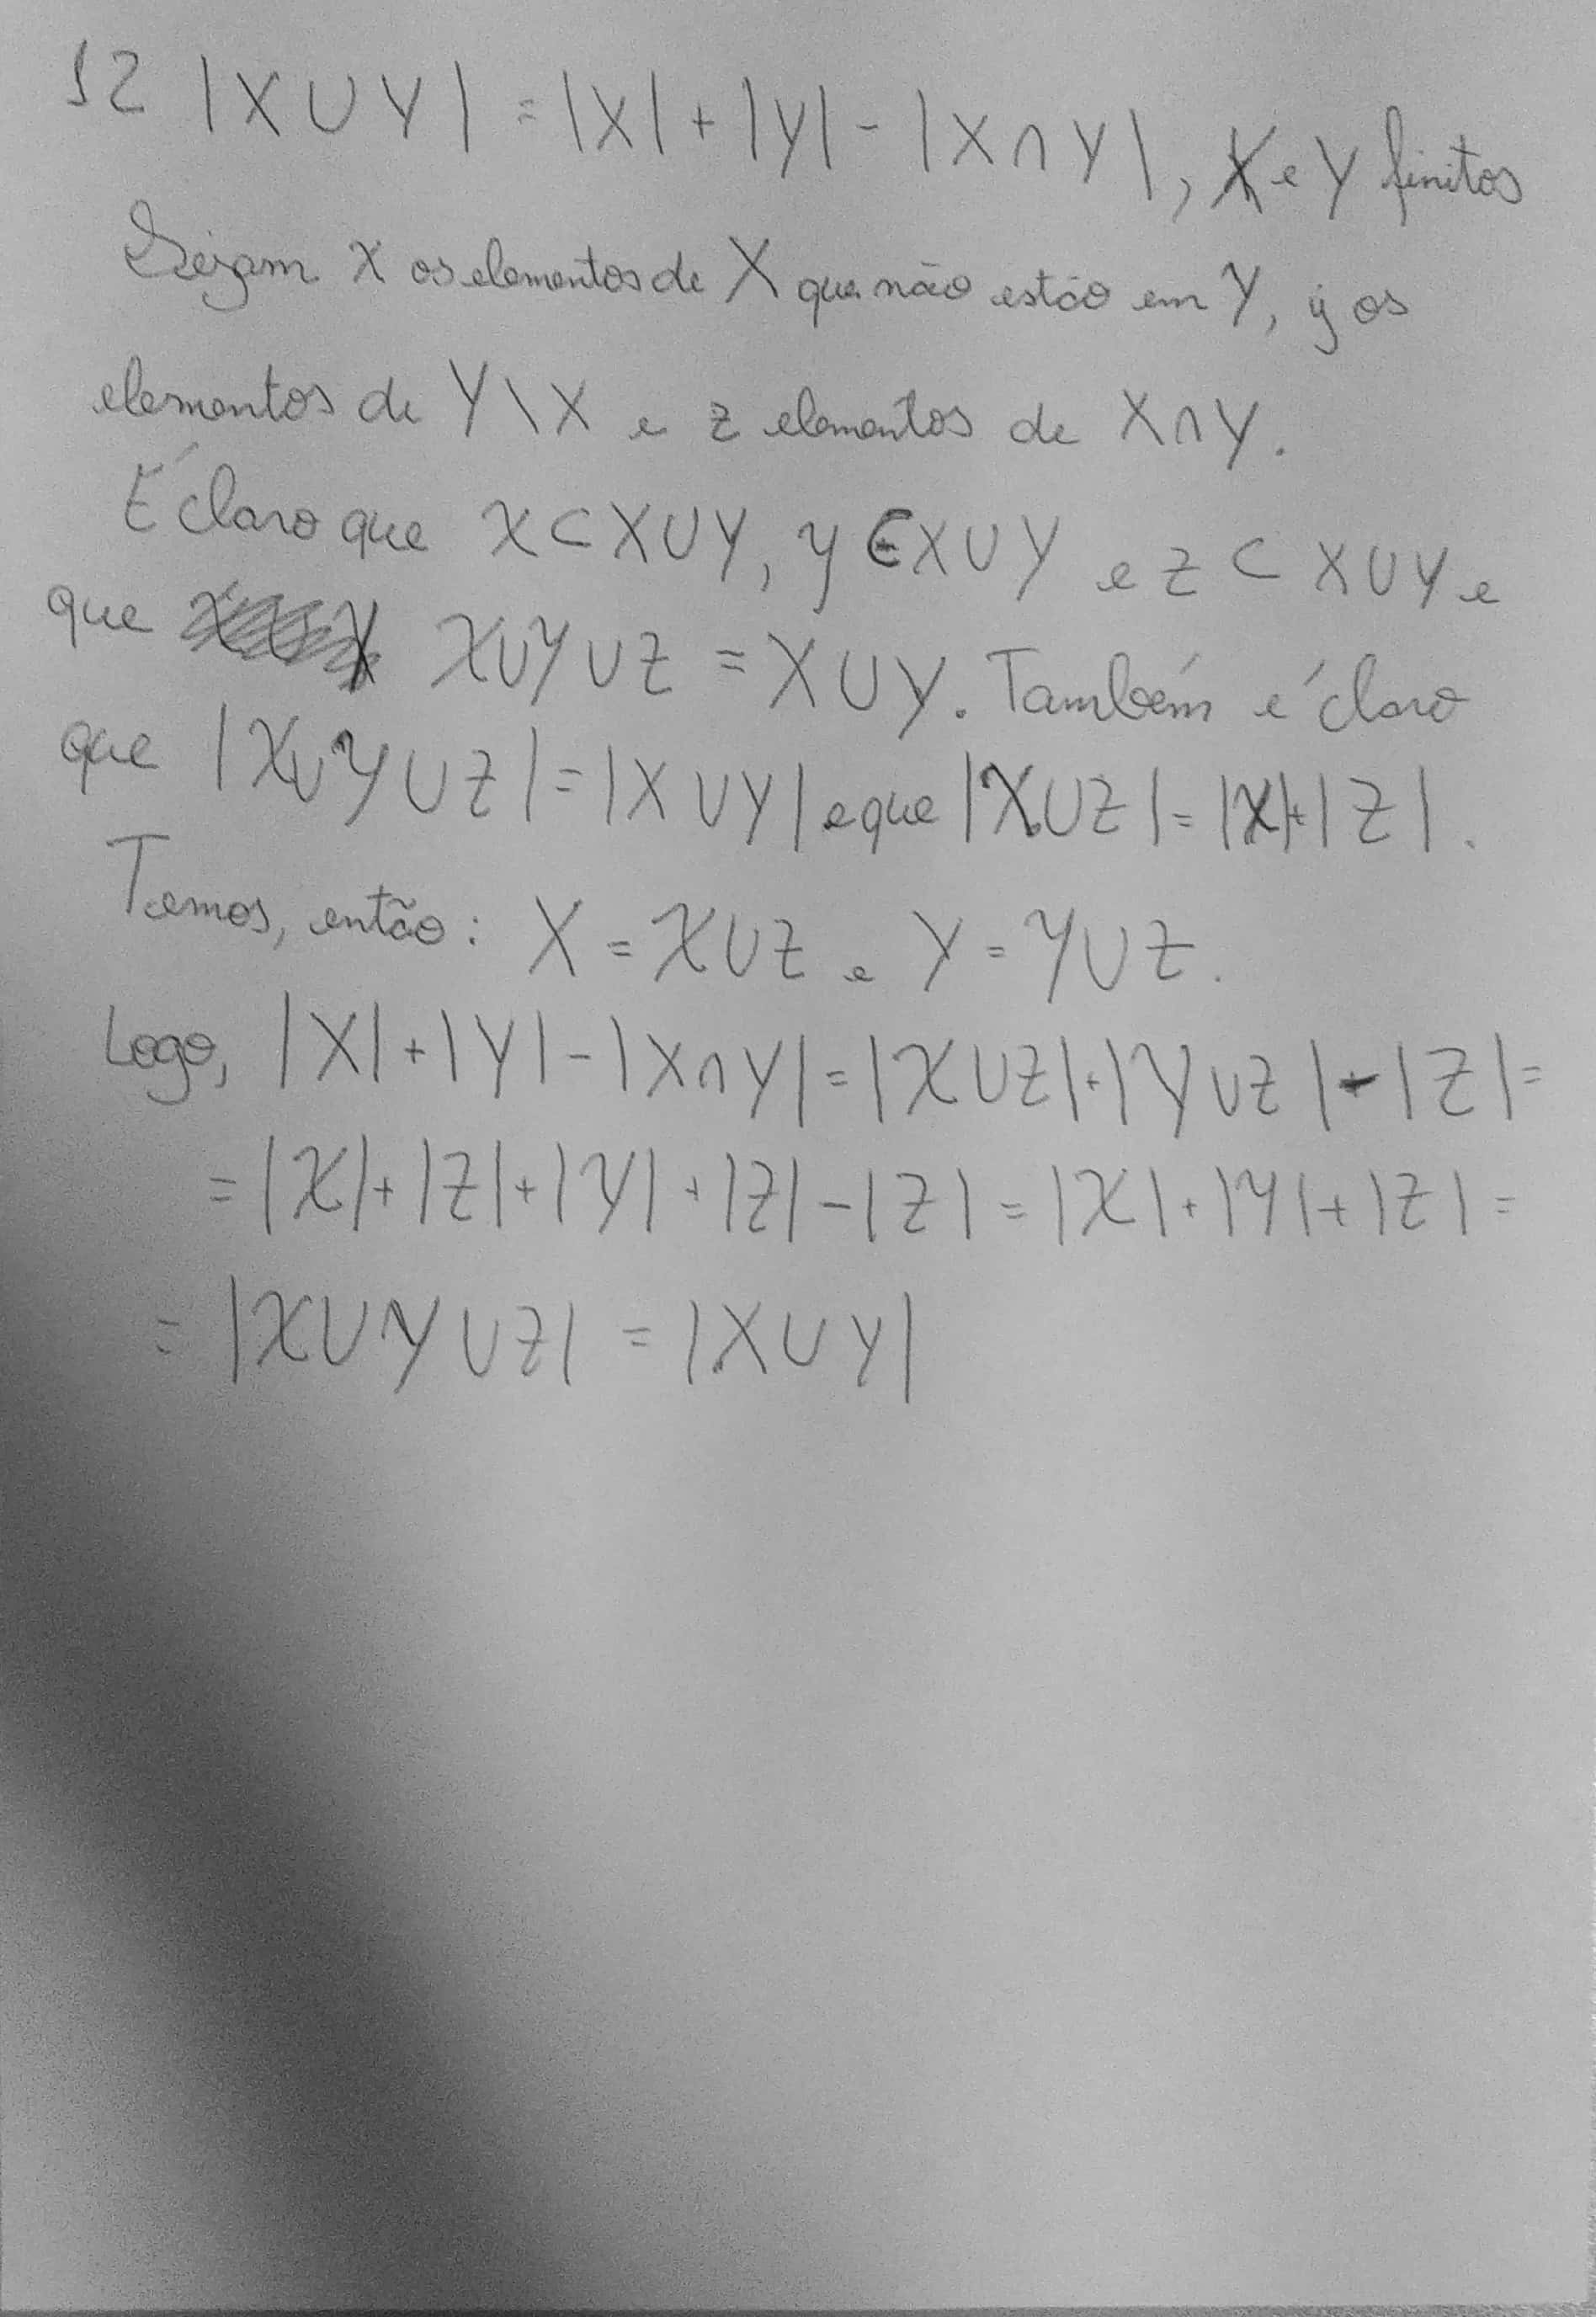 12 |X∪Y| = |X| + |Y| - |X∩Y|, X e Y finitos
Sejam 𝒳 os elementos de X que não estão em Y, 𝒴 os
elementos de Y\X e Z elementos de X∩Y.
É claro que 𝒳 ⊂ X∪Y, 𝒴 ⊂ X∪Y e Z ⊂ X∪Y e
que 𝒳∪𝒴∪Z = X∪Y. Também é claro
que |𝒳∪𝒴∪Z| = |X∪Y| e que |𝒳∪Z| = |𝒳|+|Z|.
Temos, então: X = 𝒳∪Z e Y = 𝒴∪Z.
Logo, |X|+|Y|-|X∩Y| = |𝒳∪Z|+|𝒴∪Z|-|Z| =
= |𝒳|+|Z|+|𝒴|+|Z|-|Z| = |𝒳|+|𝒴|+|Z| =
= |𝒳∪𝒴∪Z| = |X∪Y|